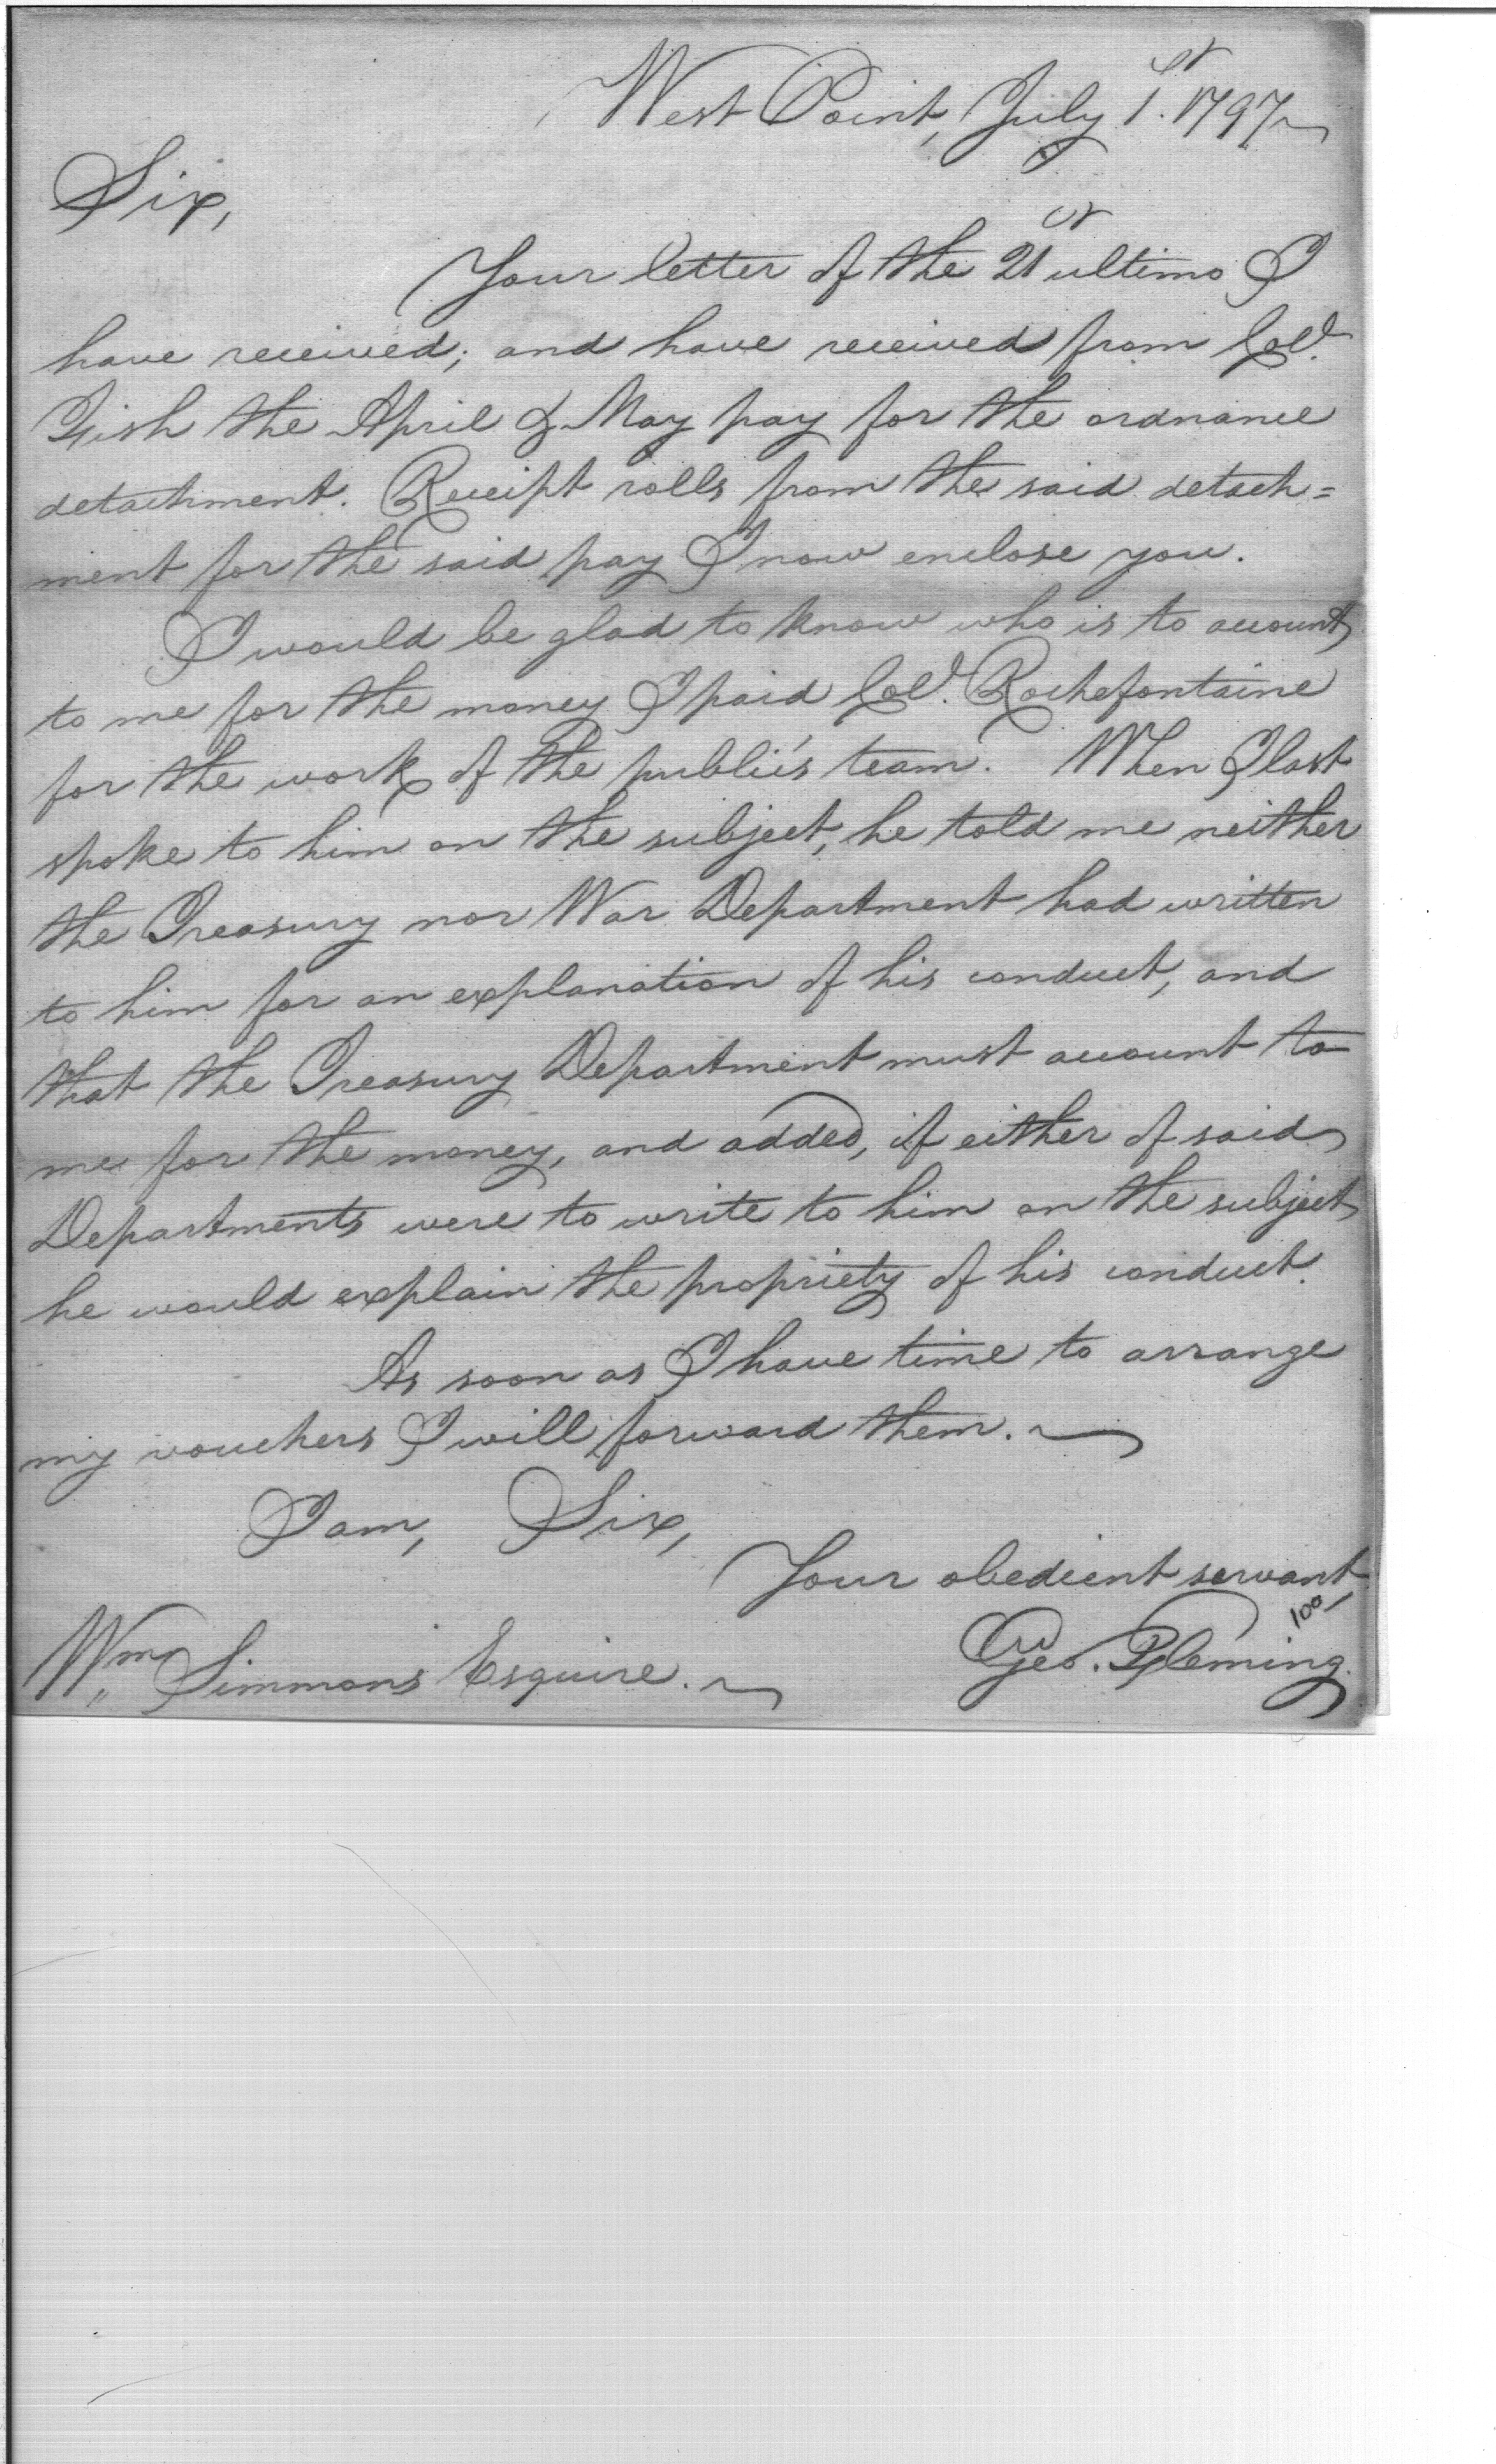 West Point, July 1st. 1797
Sir,
Your letter of the 21st ultimo I
have received; and have received from Col.
Fish the April & May pay for the ordnance
detachment. Receipt rolls from the said detach=
ment for the said pay I now enclose you.
I would be glad to know who is to account
to me for the money I paid Col. Rochefontaine
for the work of the public's team. When I last
spoke to him on the subject, he told me neither
the Treasury nor War Department had written
to him for an explanation of his conduct, and
that the Treasury Department must account to
me for the money, and added, if either of said
Departments were to write to him on the subject
he would explain the propriety of his conduct.
As soon as I have time to arrange
my vouchers I will forward them.
I am, Sir,
Your obedient servant
100
Geo. Fleming
Wm Simmons Esquire.